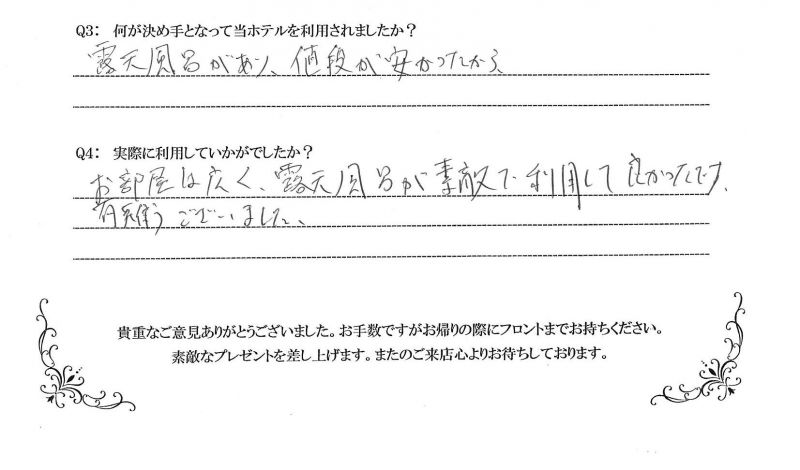 Q3: 何が決め手となって当ホテルを利用されましたか?
露天風呂があり、値段が安かったから、
Q4: 実際に利用していかがでしたか?
お部屋は広く、露天風呂が素敵で利用して良かったです、
有難うございました、
貴重なご意見ありがとうございました。お手数ですがお帰りの際にフロントまでお持ちください。
素敵なプレゼントを差し上げます。またのご来店心よりお待ちしております。